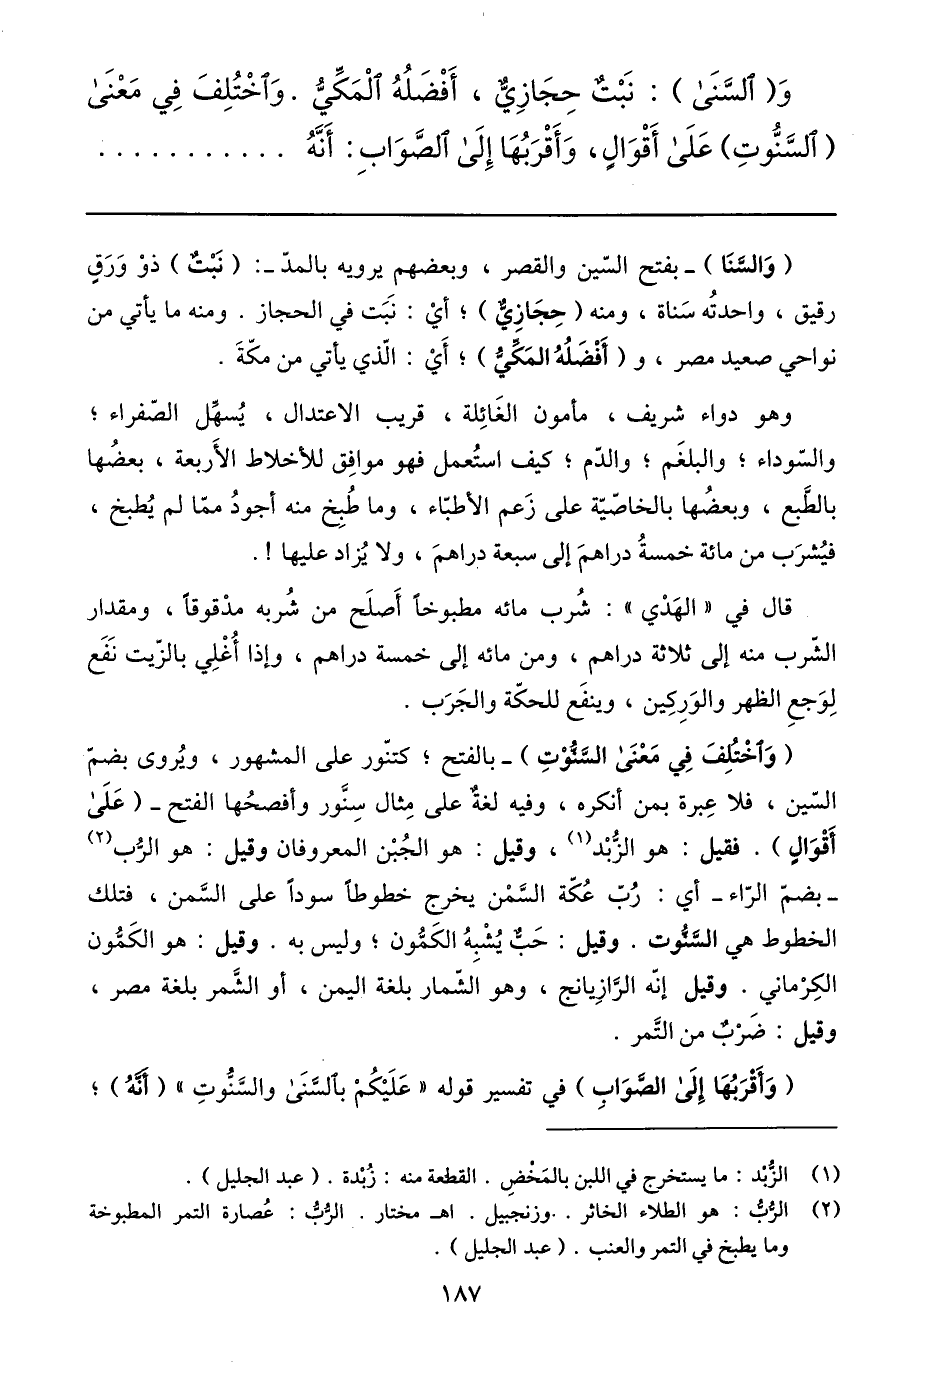 وَ( ٱلسَّنَىٰ ) : نَبْتٌ حِجَازِيٌّ ، أَفْضَلُهُ ٱلْمَكِّيُّ . وَٱخْتُلِفَ فِي مَعْنَىٰ
( ٱلسَّنُّوتِ) عَلَىٰ أَقْوَالٍ، وَأَقْرَبُهَا إِلَىٰ ٱلصَّوَابِ: أَنَّهُ . . . . . . . . . . . .
( وَالسَّنَا ) ـ بفتح السّين والقصر ، وبعضهم يرويه بالمدّ ـ: ( نَبْتٌ ) ذو وَرَقٍ
رقيق ، واحدتُه سَناة ، ومنه ( حِجَازِيٌّ ) ؛ أيْ : نَبَت في الحجاز . ومنه ما يأتي من
نواحي صعيد مصر ، و ( أَفْضَلُهُ المَكِّيُّ ) ؛ أَيْ : الّذي يأتي من مكّةَ .
وهو دواء شريف ، مأمون الغَائِلة ، قريب الاعتدال ، يُسهِّل الصّفراء ؛
والسّوداء ؛ والبلغَم ؛ والدّم ؛ كيف استُعمل فهو موافِق للأخلاط الأَربعة ، بعضُها
بالطَّبع ، وبعضُها بالخاصّيّة على زَعم الأطبّاء ، وما طُبِخ منه أجودُ ممّا لم يُطبخ ،
فيُشرَب من مائة خمسةُ دراهمَ إلى سبعة دراهمَ ، ولا يُزاد عليها !.
قال في « الهَدْي » : شُرب مائه مطبوخاً أَصلَح من شُربه مدْقوقاً ، ومقدار
الشّرب منه إلى ثلاثة دراهم ، ومن مائه إلى خمسة دراهم ، وإذا أُغْلِي بالزّيت نفَع
لِوَجعِ الظهر والوَرِكين ، وينفَع للحكّة والجَرَب .
( وَٱخْتُلِفَ فِي مَعْنَىٰ السَّنُّوْتِ ) ـ بالفتح ؛ كتنّور على المشهور ، ويُروى بضمّ
السّين ، فلا عِبرة بمن أنكره ، وفيه لغةٌ على مِثال سِنَّور وأفصحُها الفتح ـ ( عَلَىٰ
أَقْوَالٍ ) . فقيل : هو الزُّبْد(١) ، وقيل : هو الجُبْن المعروفان وقيل : هو الرُّب(٢)
ـ بضمّ الرّاء ـ أي : رُبّ عُكّة السَّمْن يخرج خطوطاً سوداً على السَّمن ، فتلك
الخطوط هي السَّنُّوت . وقيل : حَبٌّ يُشْبِهُ الكَمُّون ؛ وليس به . وقيل : هو الكَمُّون
الكِرْماني . وقيل إنّه الرَّازِيانج ، وهو الشّمار بلغة اليمن ، أو الشَّمر بلغة مصر ،
وقيل : ضَرْبٌ من التَّمر .
( وَأَقْرَبُهَا إِلَىٰ الصَّوَابِ ) في تفسير قوله « عَلَيْكُمْ بِٱلسَّنَىٰ والسَّنُّوتِ » ( أَنَّهُ ) ؛
(١) الزُّبْد : ما يستخرج في اللبن بالمَخْضِ . القطعة منه : زُبْدة . ( عبد الجليل ) .
(٢) الرُّبُّ : هو الطلاء الخاثر . وزنجبيل . اهـ مختار . الرُّبُّ : عُصارة التمر المطبوخة
وما يطبخ في التمر والعنب . ( عبد الجليل ) .
١٨٧